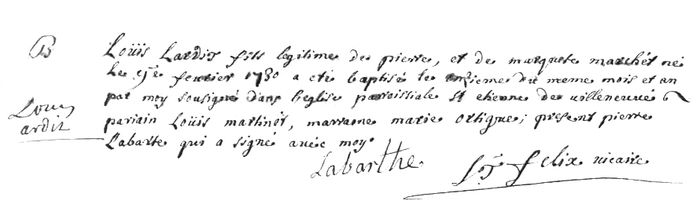 B
Louis Lardit fils legitime de pierre, et de marguete marchét né
Les 9e fevrier 1780 a eté baptisé le onsieme du meme mois et an
par moy sousigné dans l'eglise paroissiale St etienne de villeneuve
Louis
ardit
pariain Louis martinot, marraine marie ortigue; presént pierre
Labarte qui a signé avéc moy
Labarthe St felix vicaire